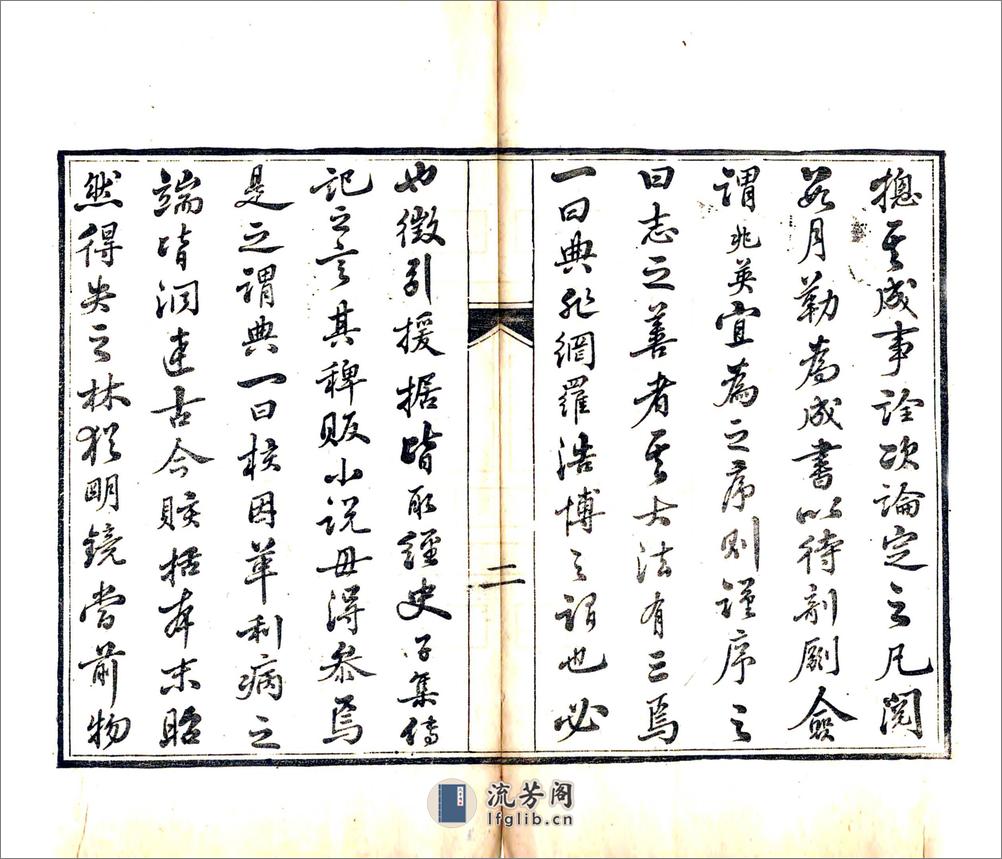 揔其成事詮次論定之凡閱
若干月勒為成書以待剞劂僉
謂兆英宜為之序則謹序之
曰志之善者其大法有三焉
一曰典非網羅浩博之謂也必
二
也徵引援据皆取經史子集傳
記之言其稗販小說毋得參焉
是之謂典一曰核因革利病之
端皆洞達古今賅括本末昭
然得失之林猶明鏡當前物
流芳阁
lfglib.cn